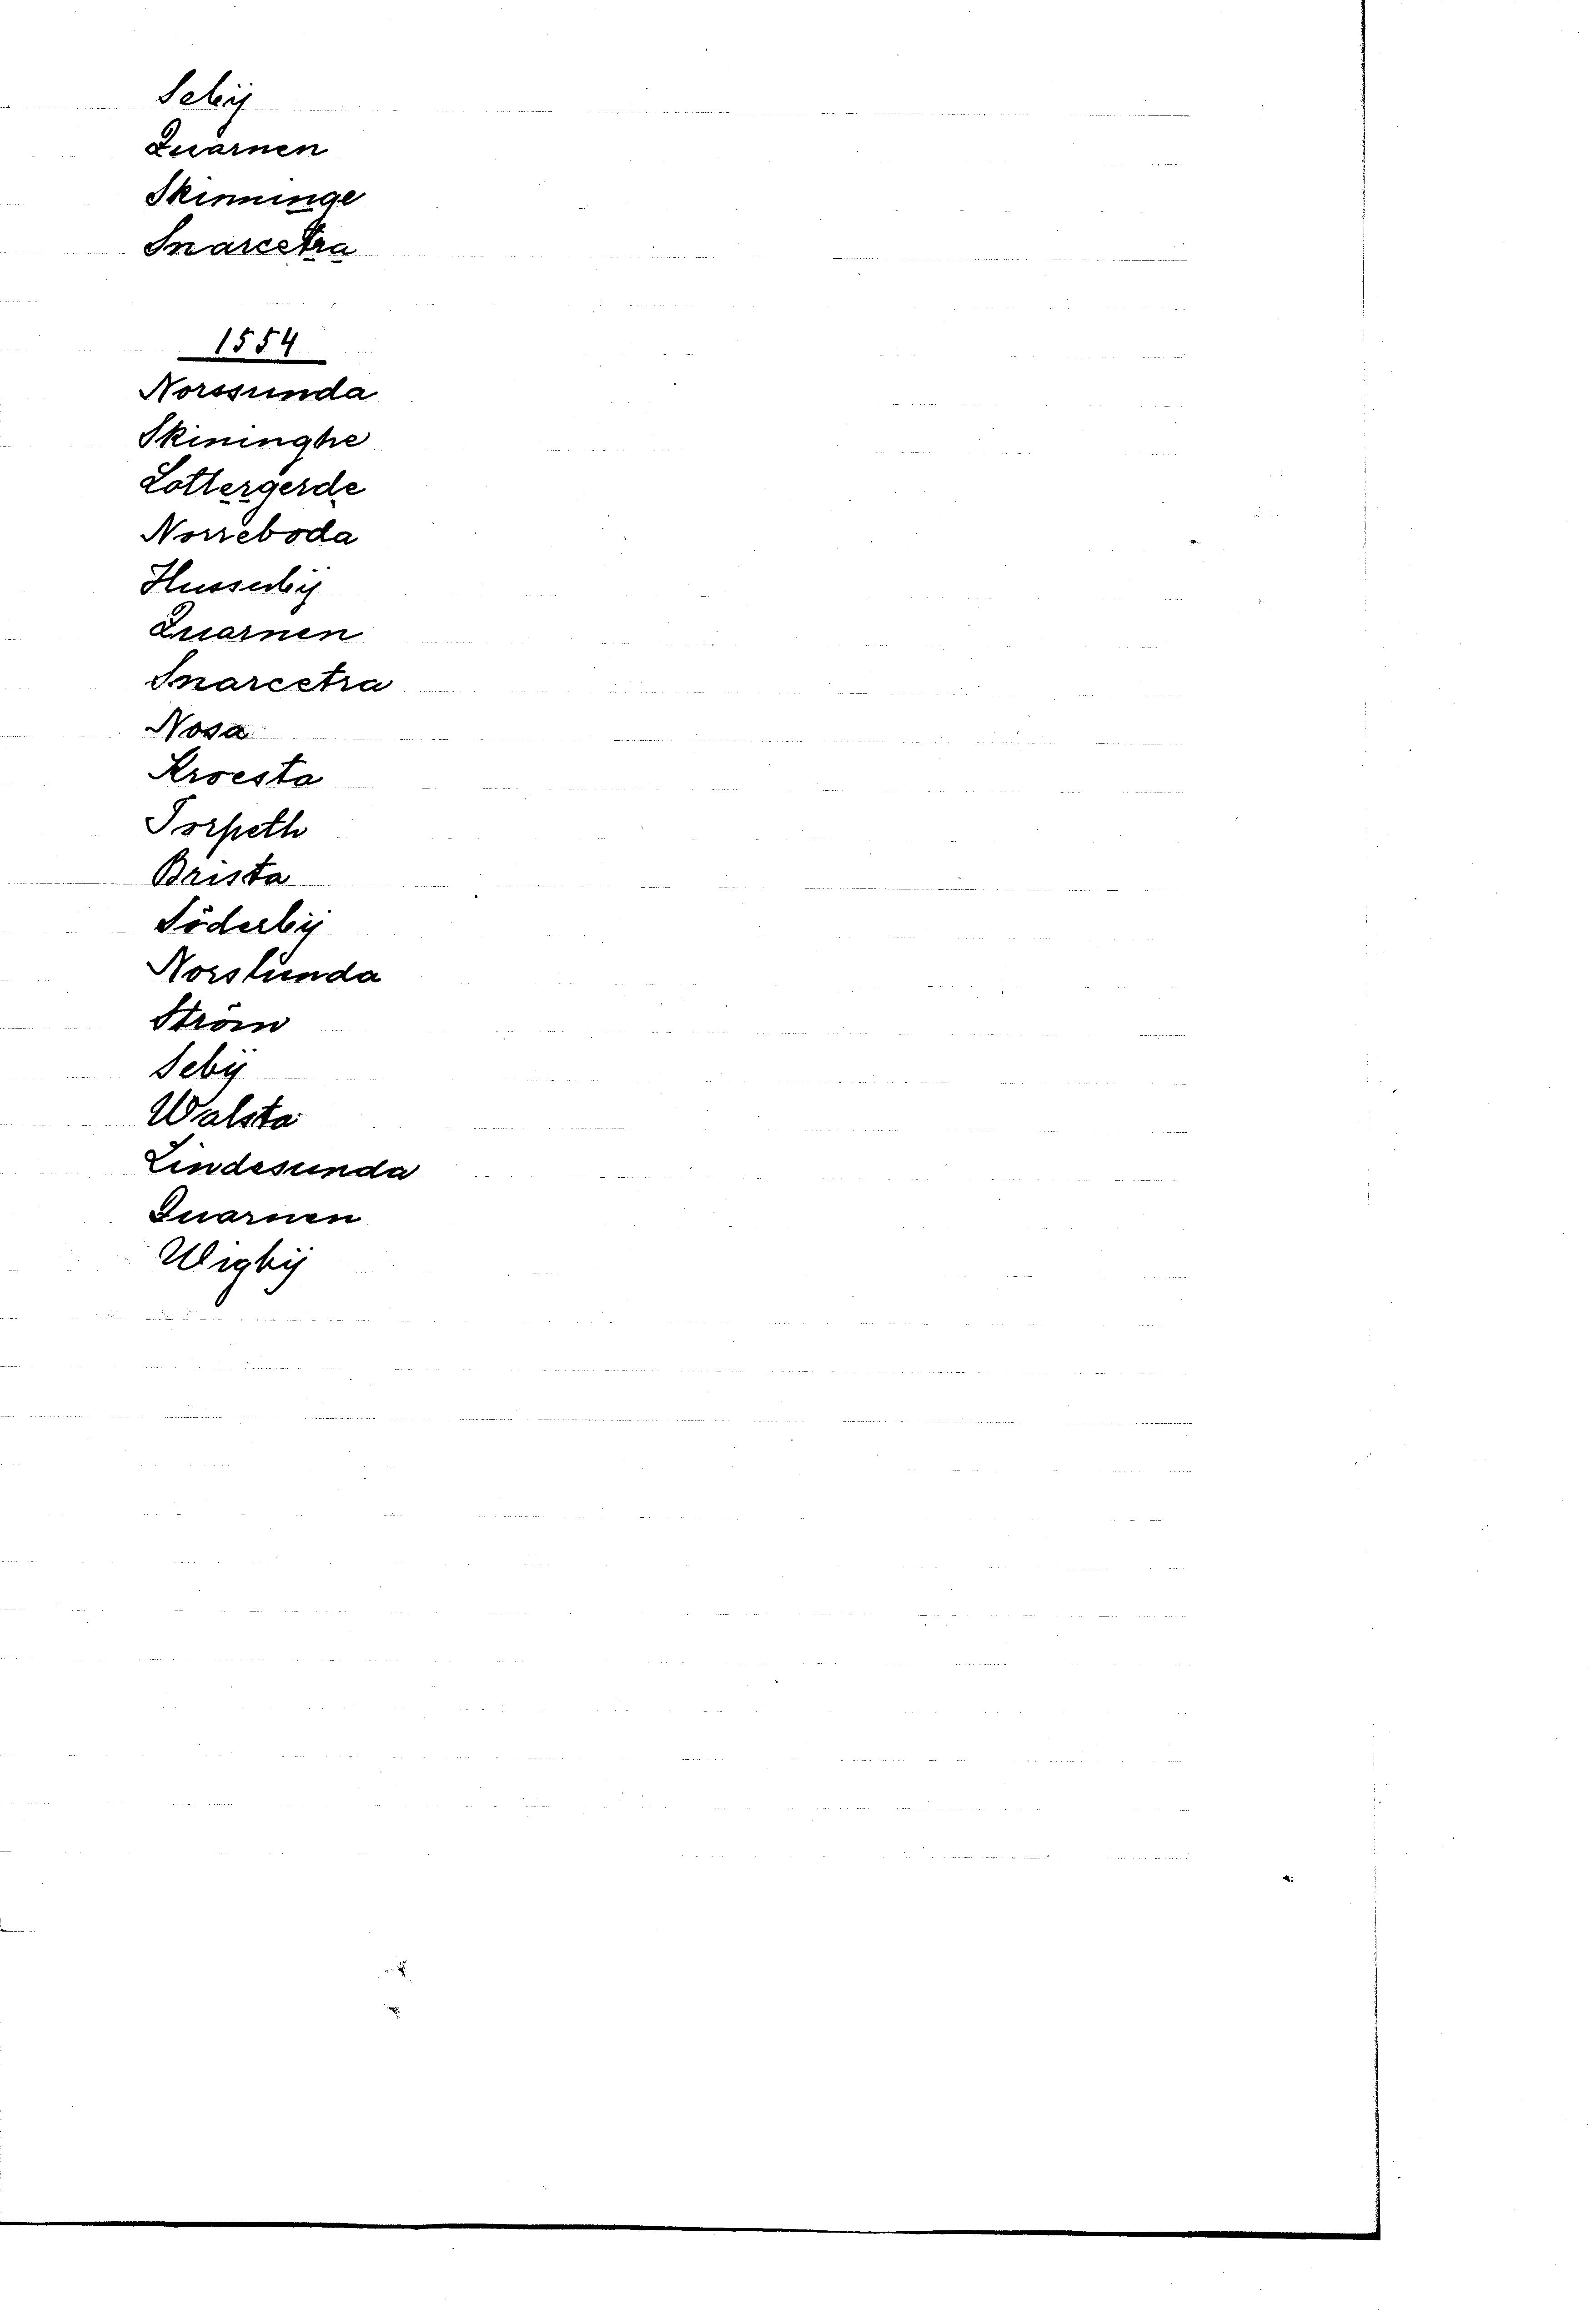 Sebÿ
Quarnen
Skinninge
Snarcetra
1554
Norssunda
Skininghe
Lottergerde
Norreboda
Husserbÿ
Quarnen
Snarcetra
Nosa
Kroesta
Torpeth
Brista
Söderbÿ
Norslunda
Ström
Sebÿ
Walsta
Lindesunda
Quarnen
Wigbÿ